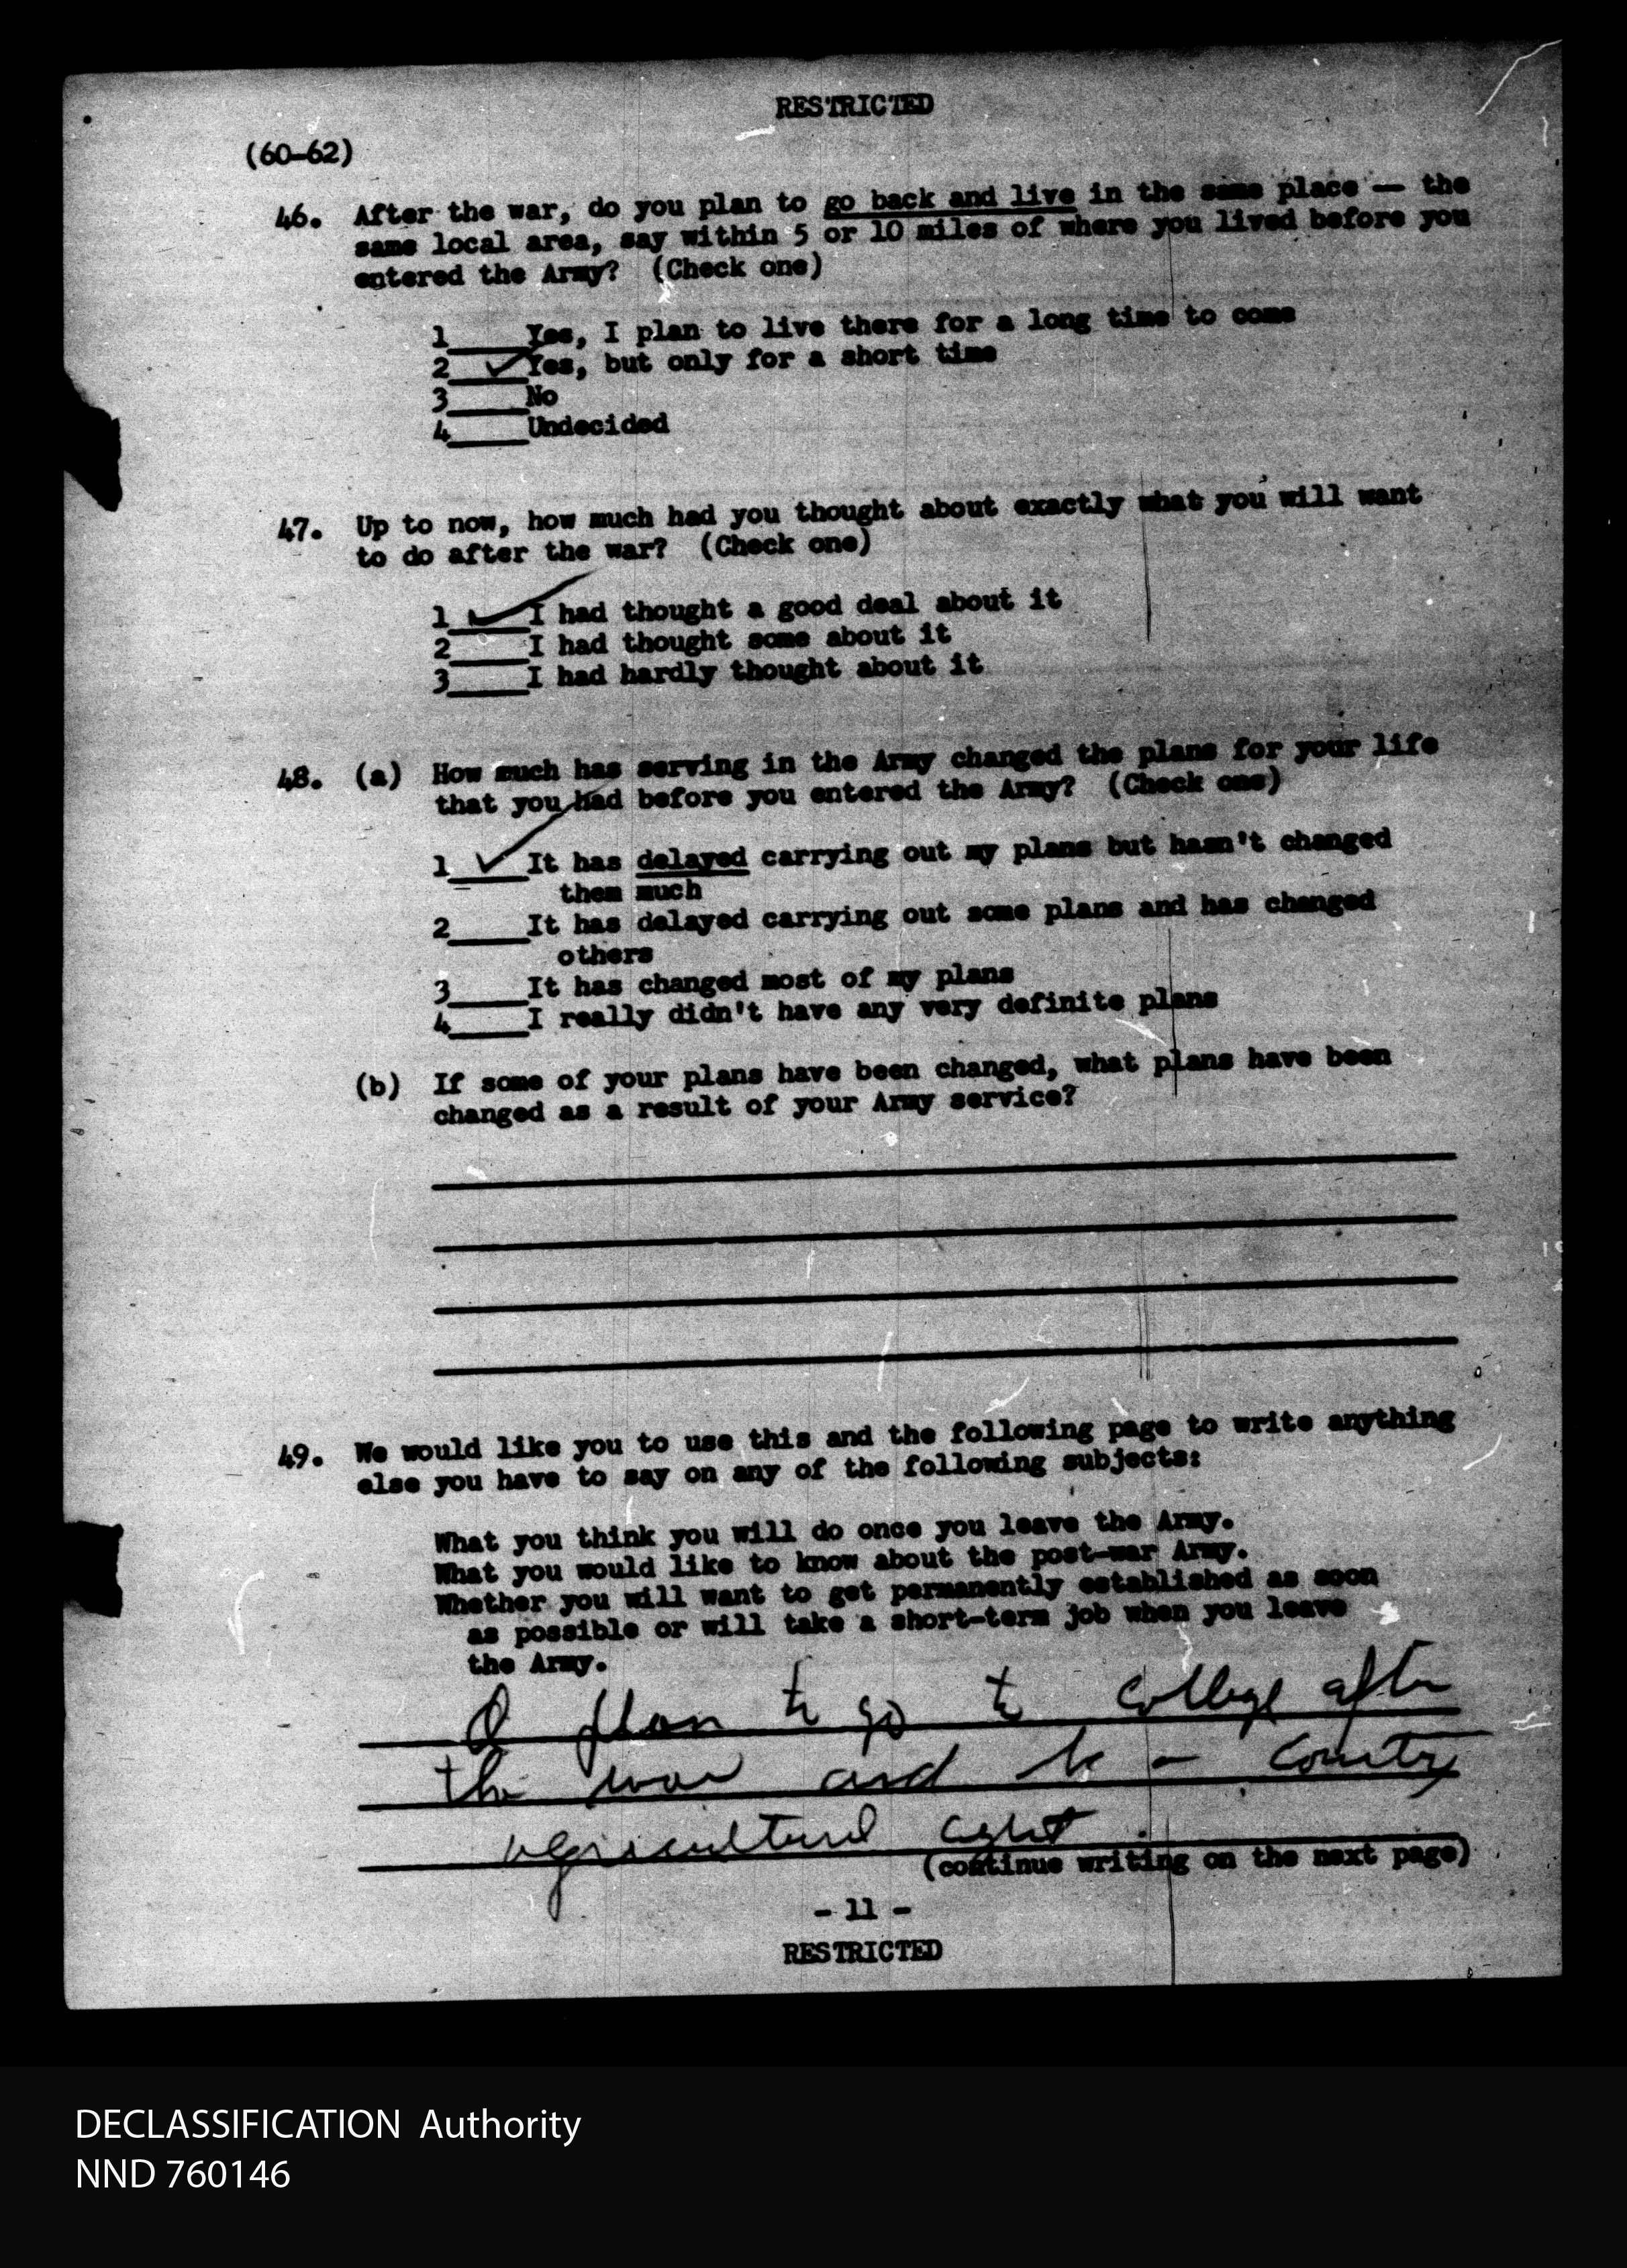 RESTRICTED
(60-62)
46. After the war, do you plan to go back and live in the same place — the
same local area, say within 5 or 10 miles of where you lived before you
entered the Army? (Check one)
1 Yes, I plan to live there for a long time to come
2 ✓ Yes, but only for a short time
3 No
4 Undecided
47. Up to now, how much had you thought about exactly what you will want
to do after the war? (Check one)
1 ✓ I had thought a good deal about it
2 I had thought some about it
3 I had hardly thought about it
48. (a) How much has serving in the Army changed the plans for your life
that you had before you entered the Army? (Check one)
1 ✓ It has delayed carrying out my plans but hasn't changed
them much
2 It has delayed carrying out some plans and has changed
others
3 It has changed most of my plans
4 I really didn't have any very definite plans
(b) If some of your plans have been changed, what plans have been
changed as a result of your Army service?
49. We would like you to use this and the following page to write anything
else you have to say on any of the following subjects:
What you think you will do once you leave the Army.
What you would like to know about the post-war Army.
Whether you will want to get permanently established as soon
as possible or will take a short-term job when you leave
the Army.
I plan to go to College after
the war and be a County
agricultural agent.
(continue writing on the next page)
- 11 -
RESTRICTED
DECLASSIFICATION Authority
NND 760146